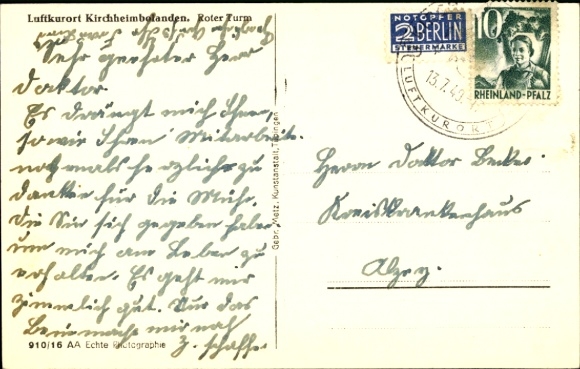 Luftkurort Kirchheimbolanden. Roter Turm
Sehr geehrter Herr
Doktor.
Es drängt mich Ihnen,
sowie Ihren Mitarbeite.
nochmals herzlichs zu
danken für die Mühe,
die Sie sich gegeben haben
um mich am Leben zu
erhalten. Es geht mir
zimmlich gut. Nur das
mir noch
z. schaffe.
910/16 AA Echte Photographie
Gebr. Metz, Kunstanstalt, Tübingen
NOTOPFER
2 BERLIN
STEUERMARKE
10
RHEINLAND-PFALZ
13.7.49
LUFTKURORT
Herrn Doktor Becker
Kreiskrankenhaus
Alzey.